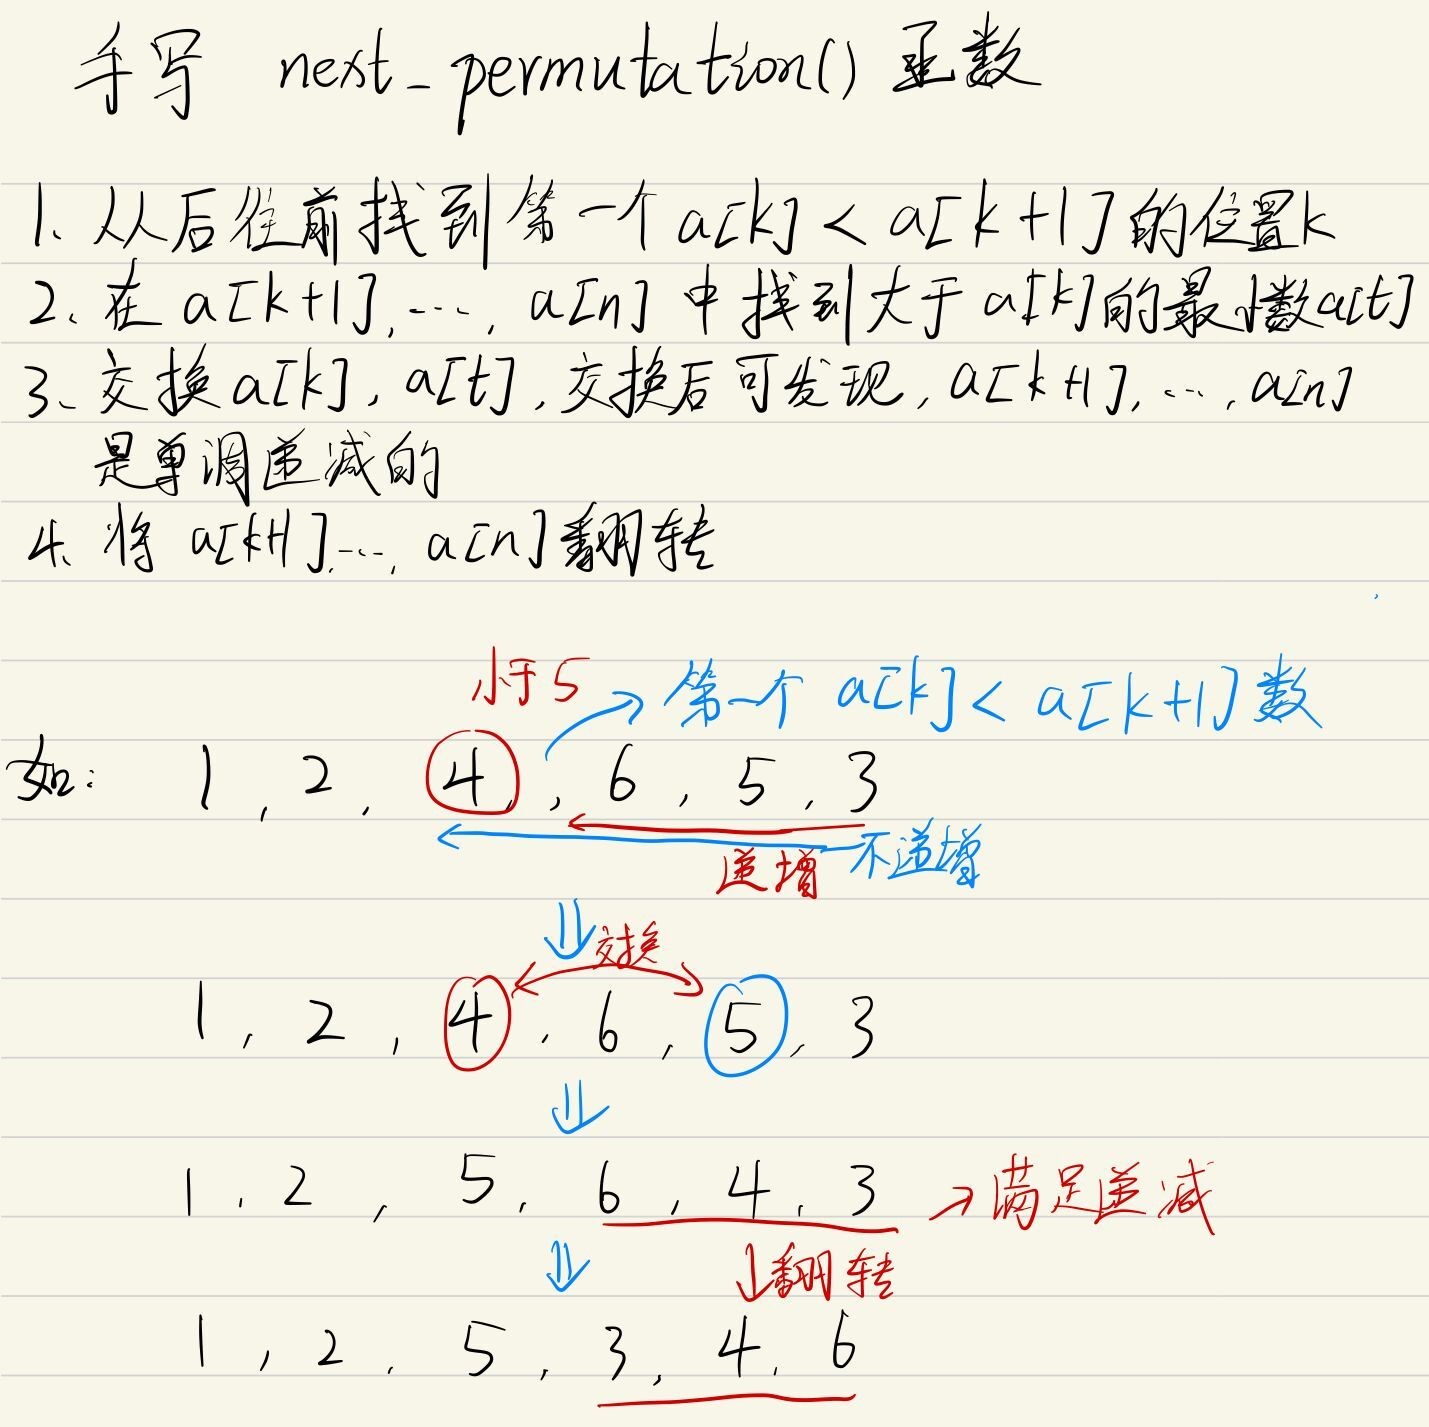 手写 next_permutation() 函数
1、从后往前找到第一个 a[k] < a[k+1] 的位置k
2、在 a[k+1], ..., a[n] 中找到大于 a[k] 的最小数a[t]
3、交换 a[k], a[t], 交换后可发现, a[k+1], ..., a[n]
是单调递减的
4、将 a[k+1], ..., a[n] 翻转
小于5 → 第一个 a[k] < a[k+1] 数
如: 1 , 2 , 4 , , 6 , 5 , 3
递增 不递增
⇓ 交换
1 , 2 , 4 , 6 , 5 , 3
⇓
1 , 2 , 5 , 6 , 4 , 3 → 满足递减
⇓ ↓翻转
1 , 2 , 5 , 3 , 4 , 6